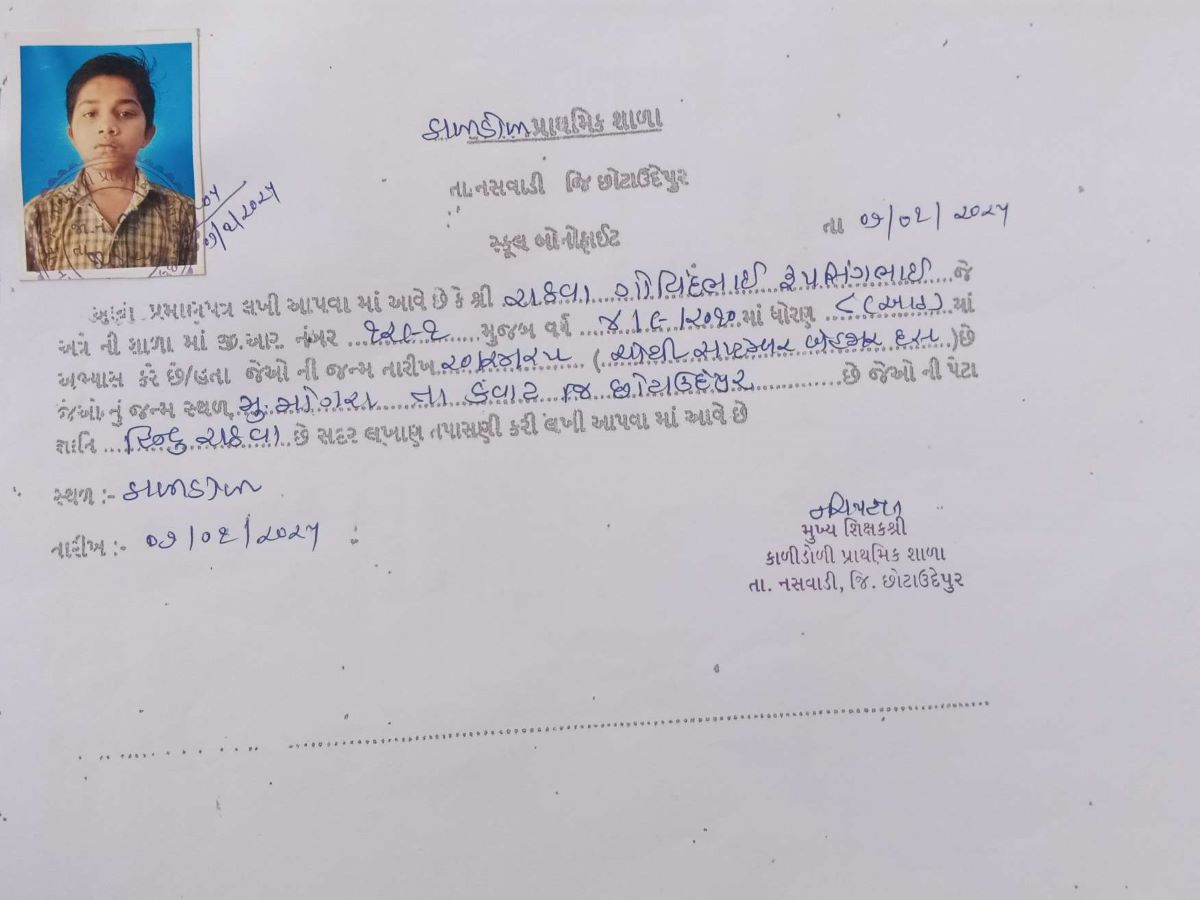 કાળીડોળી પ્રાથમિક શાળા
તા.નસવાડી જિ છોટાઉદેપુર
તા ૦૭/૦૨/૨૦૨૫
સ્કૂલ બોનોફાઈટ
પ્રમાણપત્ર લખી આપવા માં આવે છે કે શ્રી રાઠવા ગોવિંદભાઈ રૂપસિંગભાઈ જે
અત્રે ની શાળા માં જી.આર. નંબર મુજબ વર્ષ ૪/૯/૨૦૧૦ માં ધોરણ ૮(આઠ) માં
અભ્યાસ કરે છે/હતા જેઓ ની જન્મ તારીખ (ચોથી સપ્ટેમ્બર બેહજાર દસ)છે
જેઓ નું જન્મ સ્થળ મુ.મોગરા તા કવાંટ જિ છોટાઉદેપુર છે જેઓ ની પેટા
જ્ઞાતિ હિન્દુ રાઠવા છે સદર લખાણ તપાસણી કરી લખી આપવા માં આવે છે
સ્થળ :- કાળીડોળી
તારીખ :- ૦૭/૦૨/૨૦૨૫
મુખ્ય શિક્ષકશ્રી
કાળીડોળી પ્રાથમિક શાળા
તા. નસવાડી, જિ. છોટાઉદેપુર